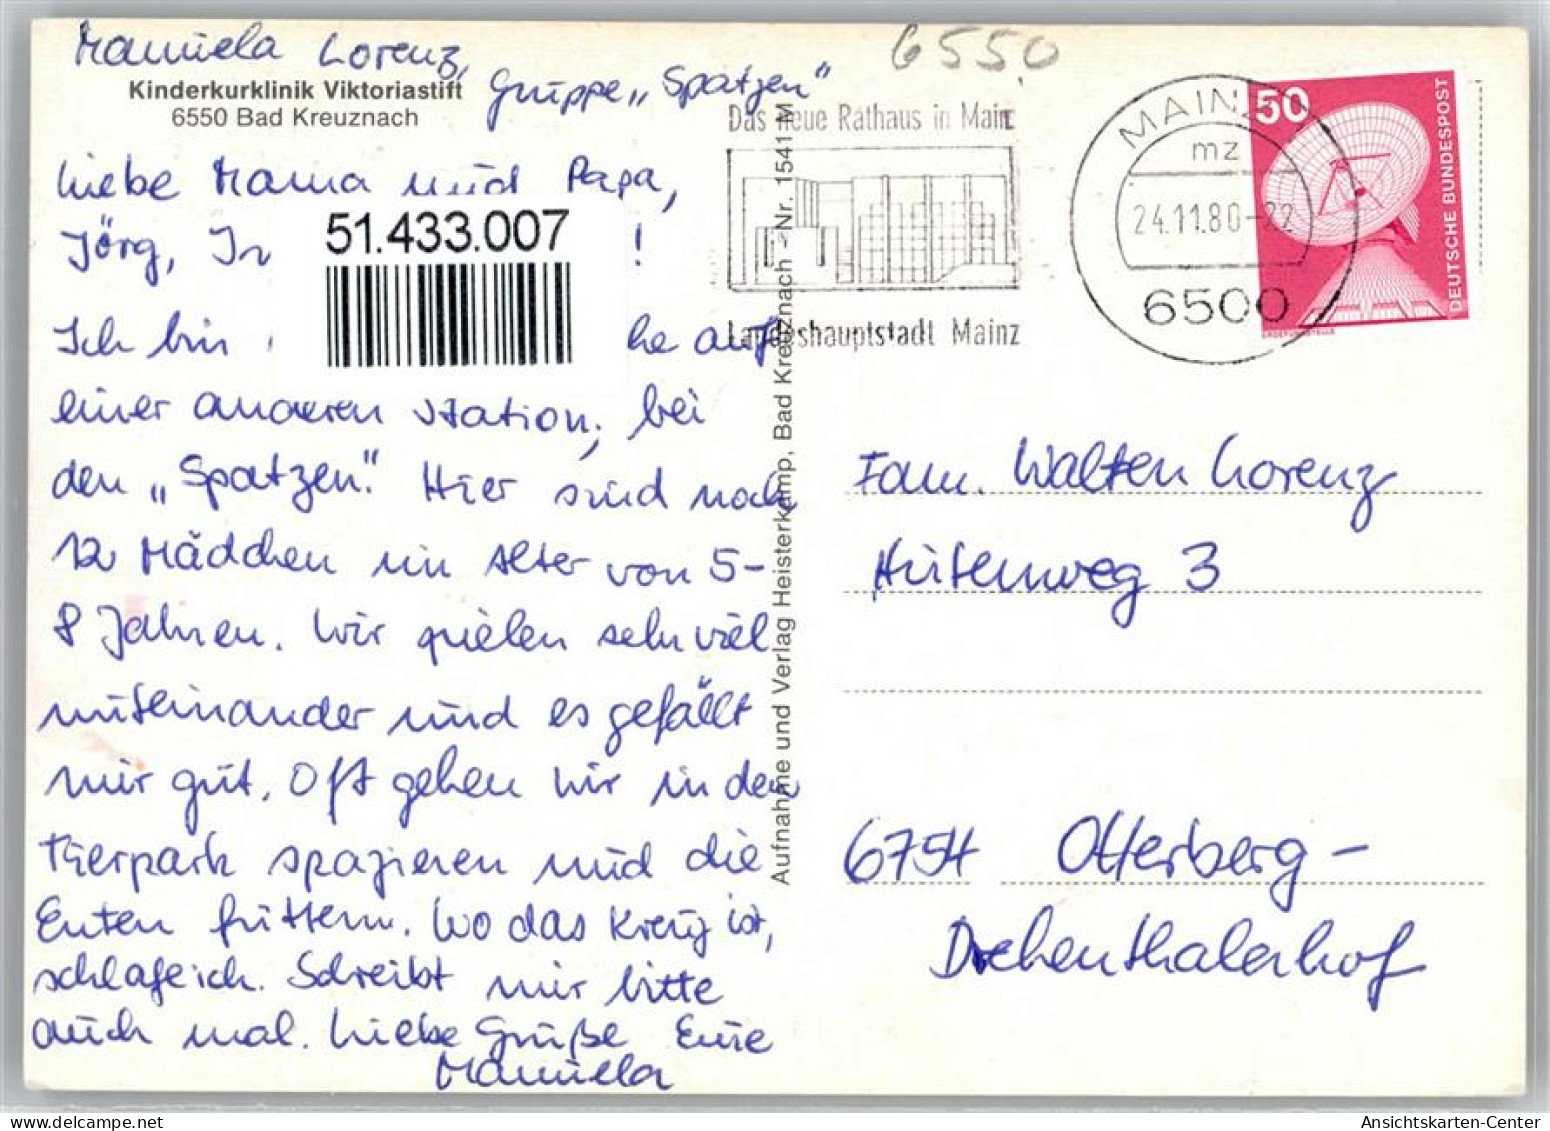 Manuela Lorenz,
Gruppe „Spatzen"
Kinderkurklinik Viktoriastift
6550 Bad Kreuznach
Liebe Mama und Papa,
Jörg, !
51.433.007
Ich bin auf
einer anderen Station, bei
den „Spatzen". Hier sind noch
12 Mädchen im Alter von 5-
8 Jahren. Wir spielen sehr viel
miteinander und es gefällt
mir gut. Oft gehen wir in den
Tierpark spazieren und die
Enten füttern. Wo das Kreuz ist,
schlafe ich. Schreibt mir bitte
auch mal. Liebe Grüße Eure
Manuela
Aufnahme und Verlag Heisterkamp, Bad Kreuznach - Nr. 1541 M
6550
Das neue Rathaus in Mainz
Landeshauptstadt Mainz
MAINZ 1
mz
24.11.80-22
6500
50
DEUTSCHE BUNDESPOST
ERDEFUNKSTELLE
Fam. Walter Lorenz
Hütenweg 3
6754 Otterberg-
Drehenthalerhof
oldthing.com
Ansichtskarten-Center